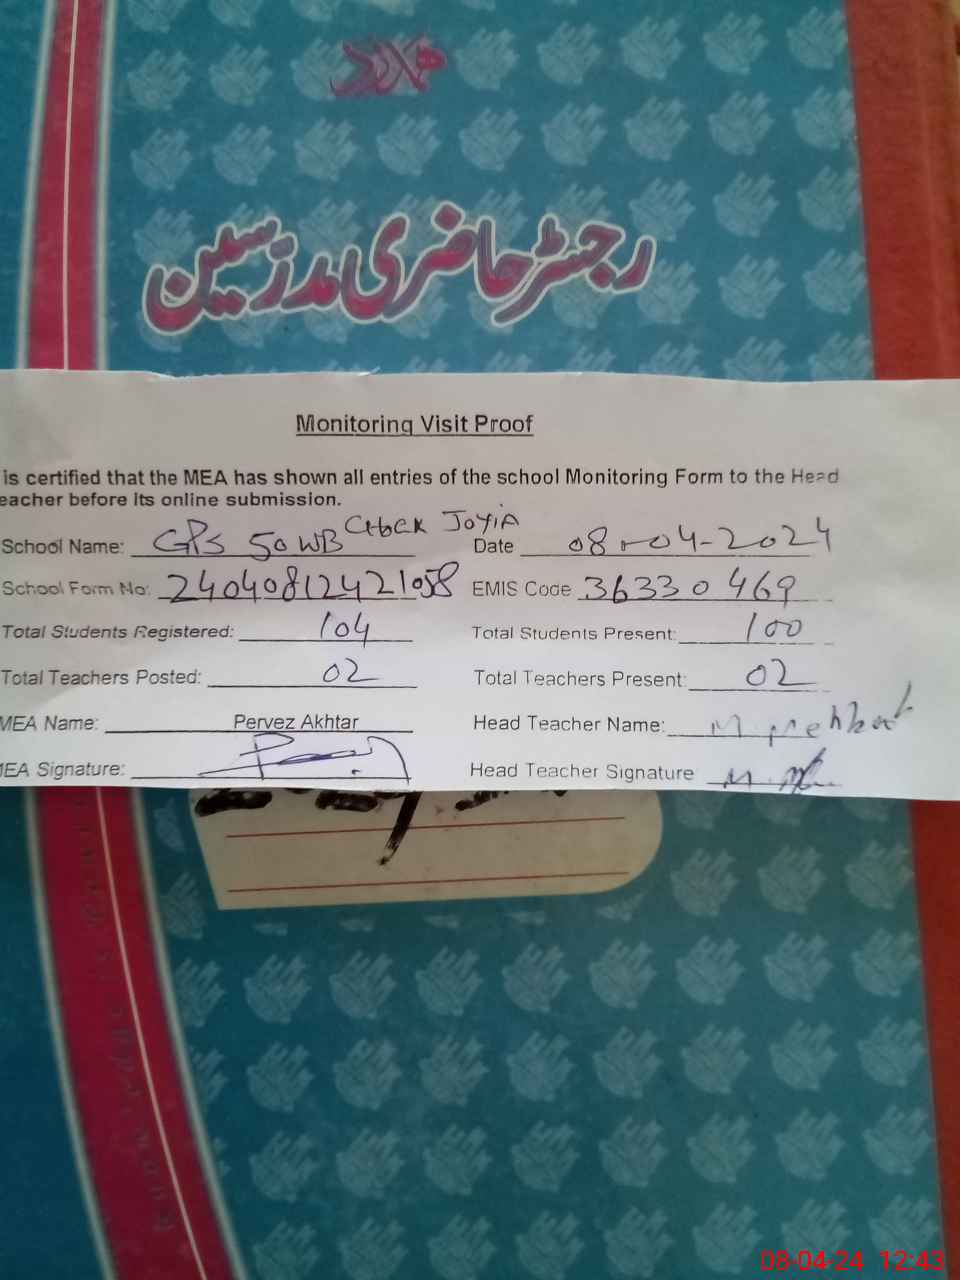 رجسٹر حاضری مدرسین
Monitoring Visit Proof
is certified that the MEA has shown all entries of the school Monitoring Form to the Head
eacher before its online submission.
School Name: GPS 50 WB Chock JoyiA Date 08-04-2024
School Form No: 240408124221058 EMIS Code 36330469
Total Students Registered: 104 Total Students Present: 100
Total Teachers Posted: 02 Total Teachers Present: 02
MEA Name: Pervez Akhtar Head Teacher Name: M
MEA Signature: Head Teacher Signature
08-04-24 12:43